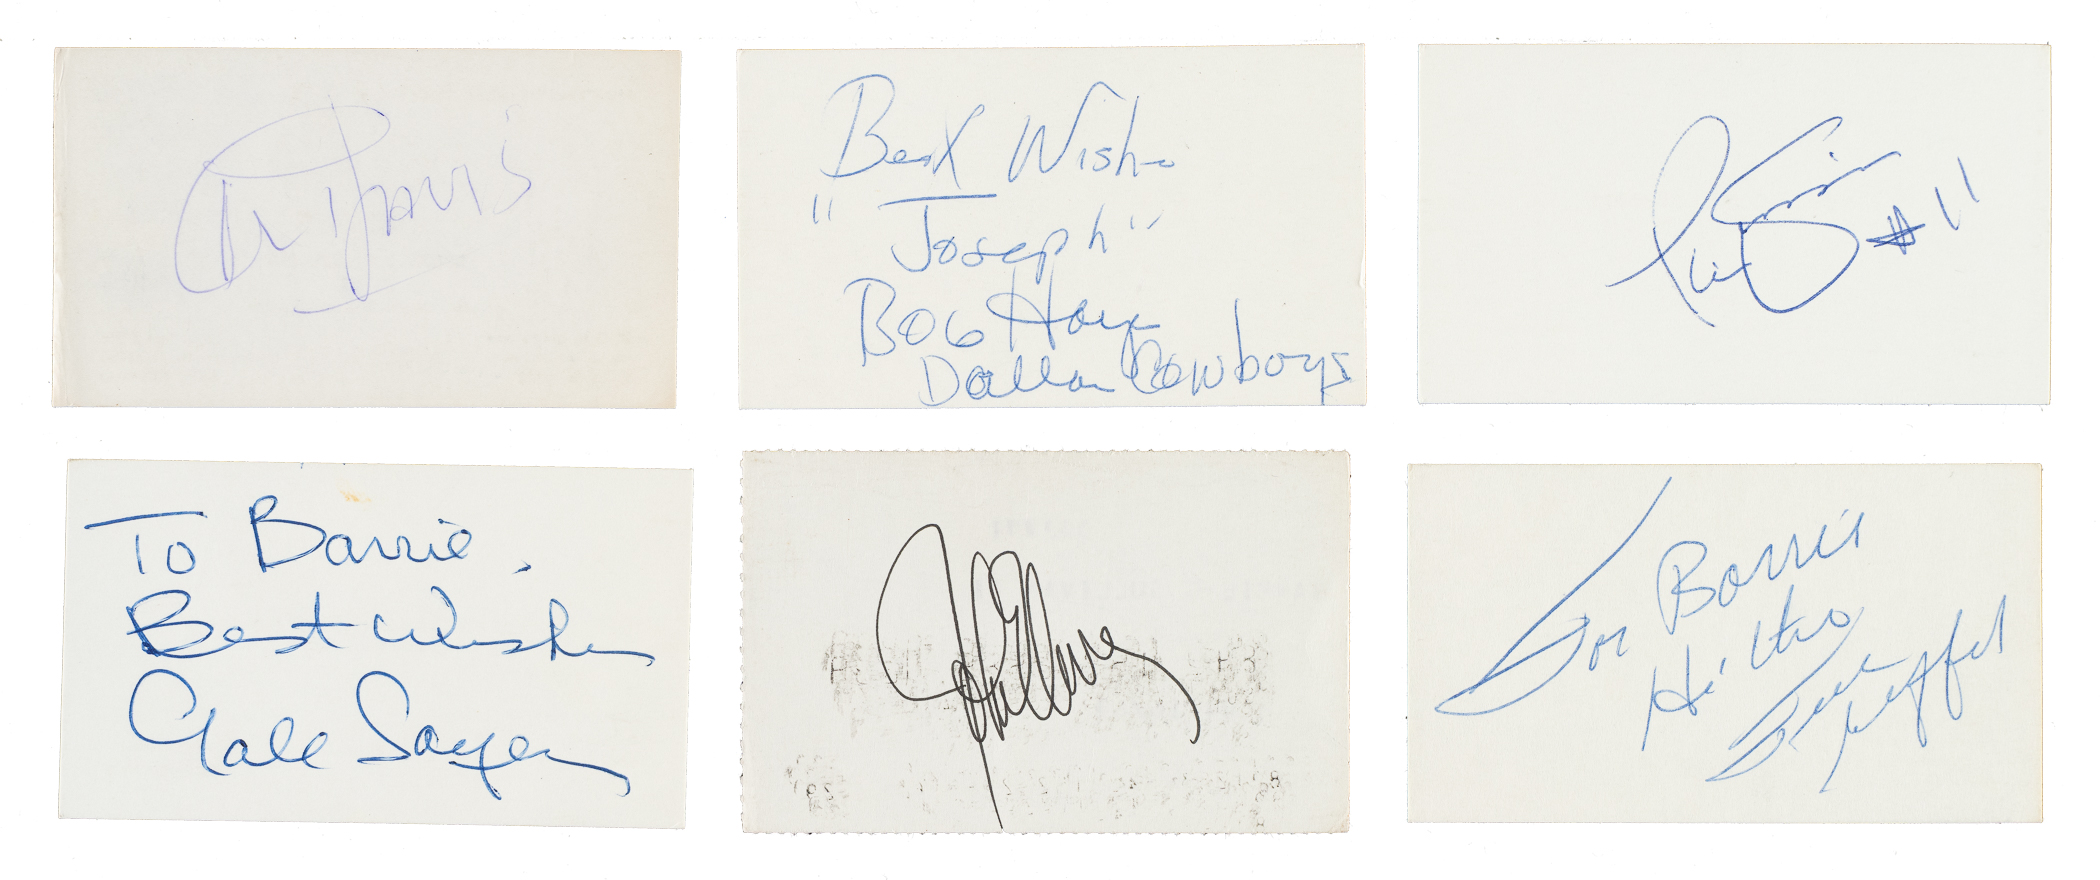 Al Davis
Best Wishes
"Joseph"
Bob Hayes
Dallas Cowboys
Phil Simms #11
To Barrie,
Best Wishes
Gale Sayers
John Elway
For Barrie
Hilton